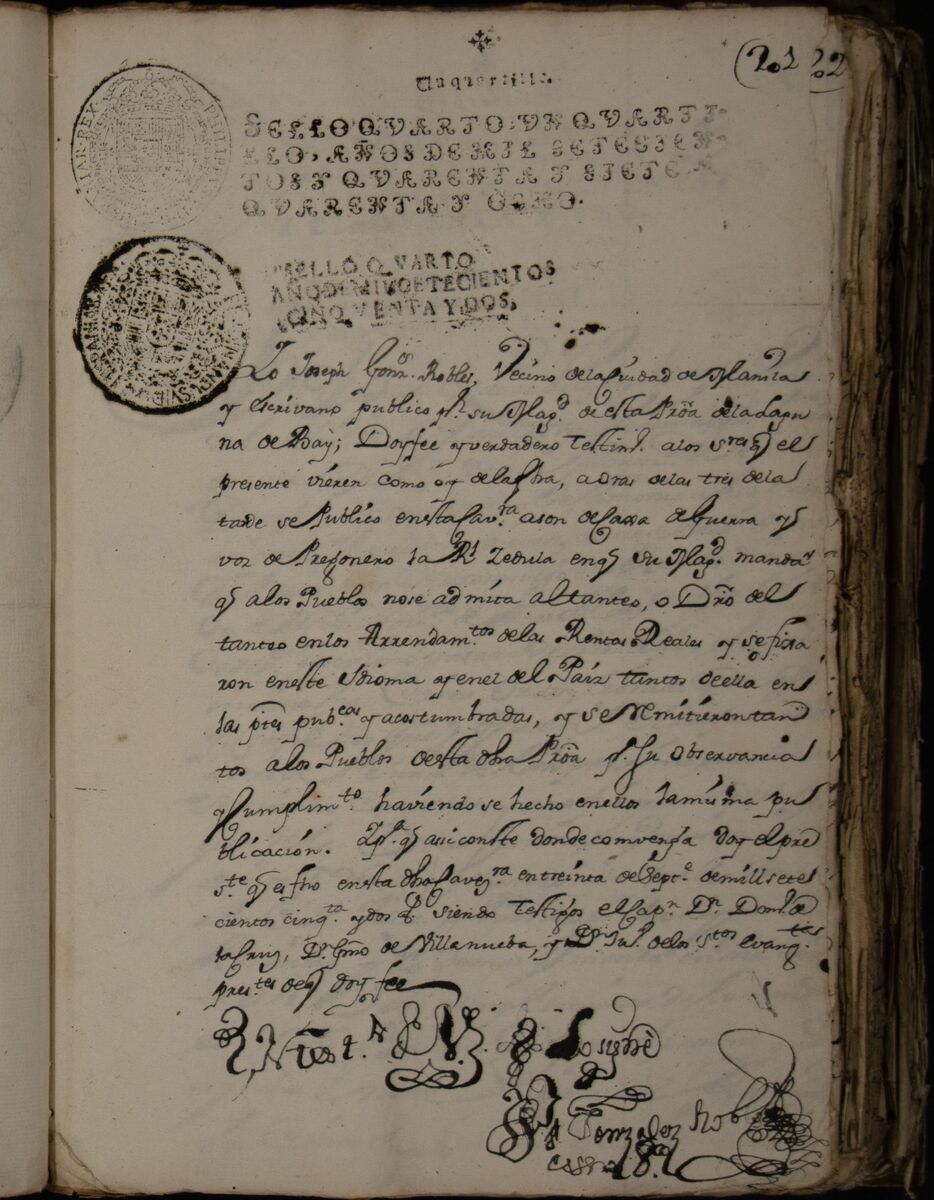 Un quartillo.
(202 22
SELLO QVARTO, VN QVARTI-
LLO, AÑOS DE MIL SETESIEN
TOS Y QVARENTA Y SIETE
QVARENTA Y OCHO.
SELLO QVARTO
AÑO DE MIL SETECIENTOS
CINQVENTA Y DOS,
Yo Joseph Gonz.s Robles, Vecino de la Ciudad de Manila
y escrivano publico p.r su Mag.d de esta Prova de la Lagu
na de Bay; Doy fee y verdadero Testim.o a los s.res q el
presente vieren como oy de la fha, a oras de las tres de la
tarde se Publico en esta Cav.ra a son de Caxa de Guerra y
voz de Pregonero la Rl Zedula en q su Mag.d manda
q a los Pueblos no se admita al tanteo, o Dro del
tanteo en los Arrendam.tos de las Rentas Reales y se fixa
ron en este Idioma y en el del Païz tantos de ella en
las ptes pub.cas y acostumbradas, y se Remitieron tan
tos a los Pueblos de esta dha Prova p.a su observancia
y Cumplim.to haviendo se hecho en ellos la misma pu
blicación. Y p.a q assi conste donde comvenga doy el pre
s.te q es fho en esta dha Cavez.ra en treinta de Sept.e de mill sete
cientos cinq.ta y dos a.s siendo Testigos el Cap.n D.n Dom.o de
la Cruz, D.n Gmo de Villanueba, y D.n Ju.o de los S.tos Evang.tas
pres.tes de q doy fee
Joseph
Gonzalez Robles